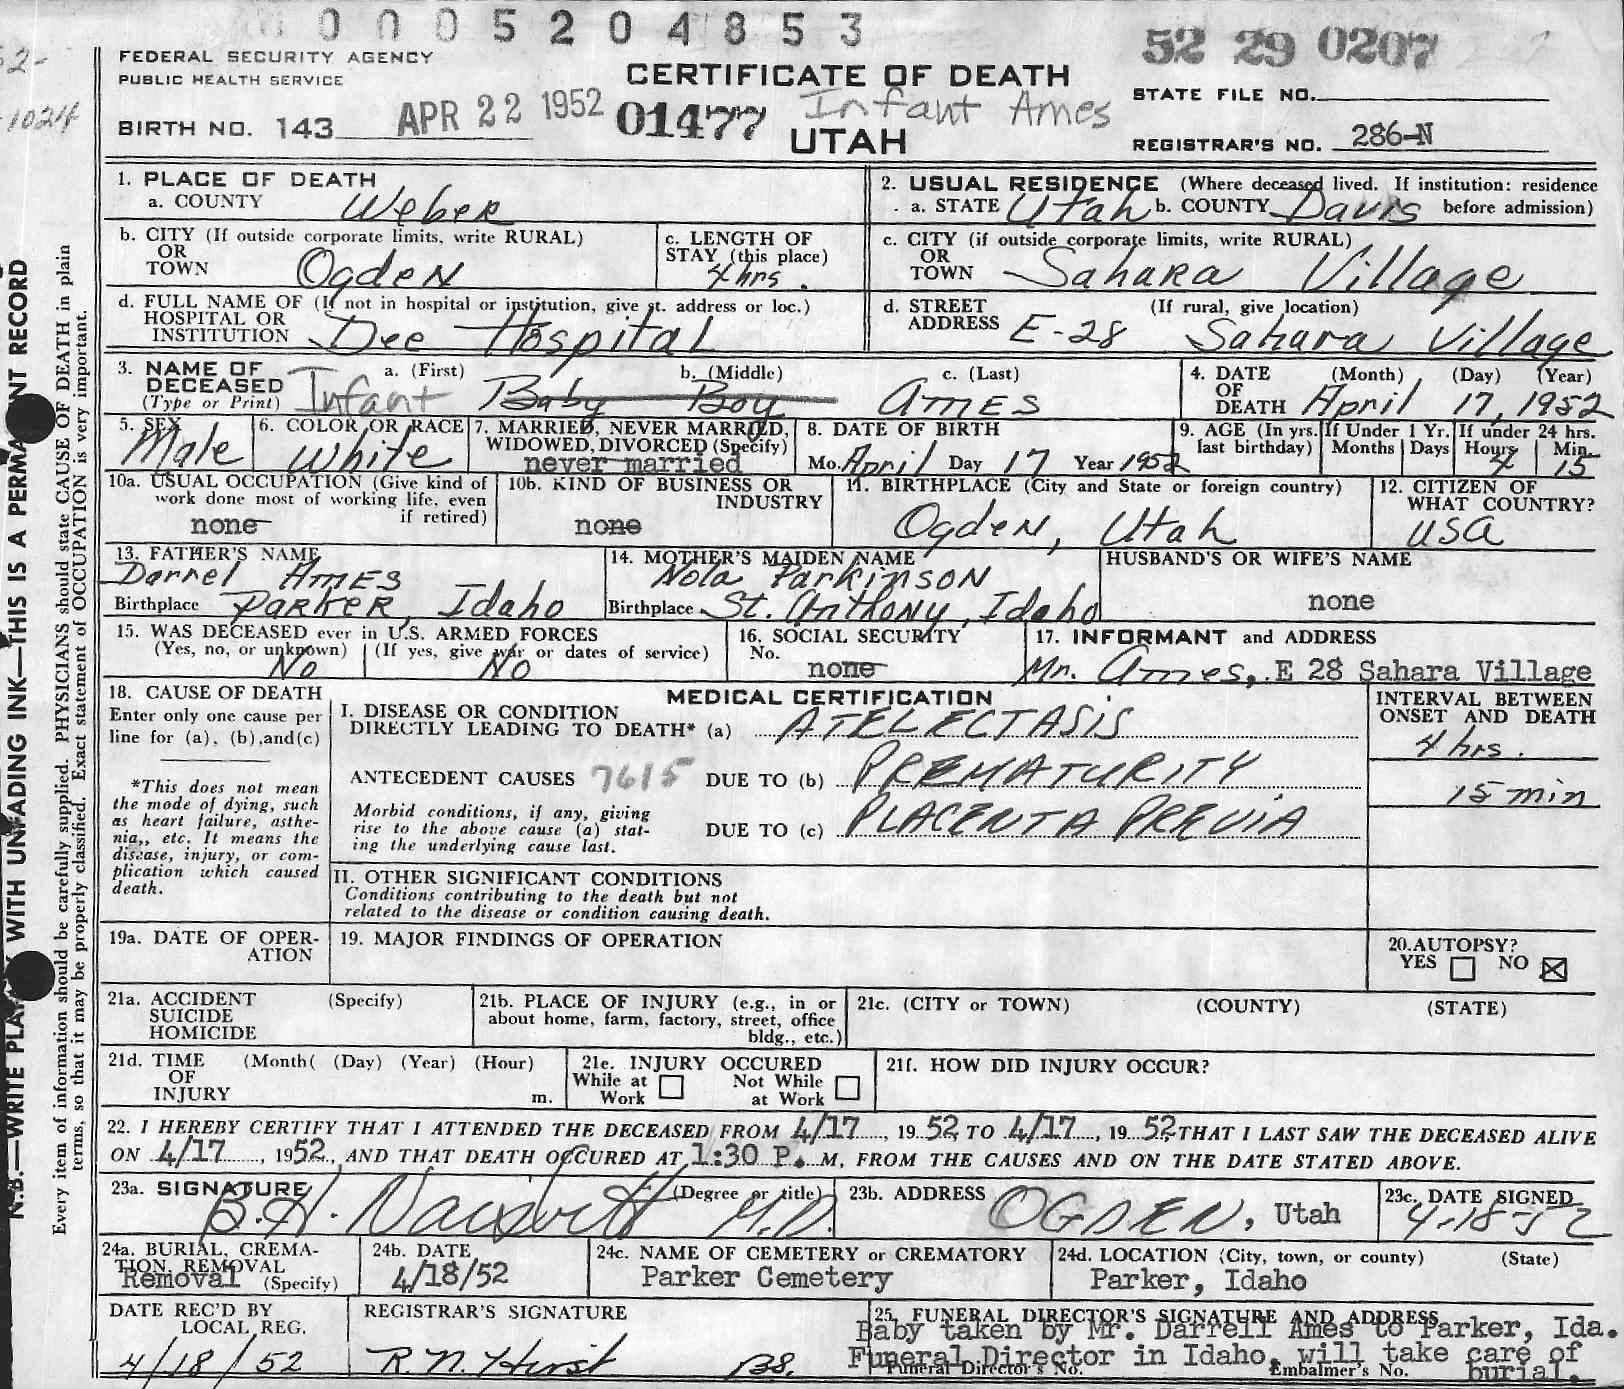 0005204853
52 29 0207
2-
1024
FEDERAL SECURITY AGENCY
PUBLIC HEALTH SERVICE
CERTIFICATE OF DEATH
STATE FILE NO.
BIRTH NO. 143 APR 22 1952 01477 Infant Ames
UTAH
REGISTRAR'S NO. 286-N
N.B.—WRITE WITH UNFADING INK—THIS IS A RECORD
Every item of information should be carefully supplied. PHYSICIANS should state CAUSE OF DEATH in plain
terms, so that it may be properly classified. Exact statement of OCCUPATION is very important.
1. PLACE OF DEATH
a. COUNTY Weber
2. USUAL RESIDENCE (Where deceased lived. If institution: residence
a. STATE Utah b. COUNTY Davis before admission)
b. CITY (If outside corporate limits, write RURAL)
OR
TOWN Ogden
c. LENGTH OF
STAY (this place)
4 hrs.
c. CITY (if outside corporate limits, write RURAL)
OR
TOWN Sahara Village
d. FULL NAME OF (If not in hospital or institution, give st. address or loc.)
HOSPITAL OR
INSTITUTION Dee Hospital
d. STREET (If rural, give location)
ADDRESS E-28 Sahara Village
3. NAME OF a. (First) b. (Middle) c. (Last)
DECEASED
(Type or Print) Infant Baby Boy Ames
4. DATE (Month) (Day) (Year)
OF
DEATH April 17, 1952
5. SEX
Male
6. COLOR OR RACE
White
7. MARRIED, NEVER MARRIED,
WIDOWED, DIVORCED (Specify)
never married
8. DATE OF BIRTH
Mo. April Day 17 Year 1952
9. AGE (In yrs. If Under 1 Yr. If under 24 hrs.
last birthday) Months Days Hours Min.
4 15
10a. USUAL OCCUPATION (Give kind of
work done most of working life, even
if retired)
none
10b. KIND OF BUSINESS OR
INDUSTRY
none
11. BIRTHPLACE (City and State or foreign country)
Ogden, Utah
12. CITIZEN OF
WHAT COUNTRY?
USA
13. FATHER'S NAME
Darrel Ames
Birthplace Parker, Idaho
14. MOTHER'S MAIDEN NAME
Nola Parkinson
Birthplace St. Anthony, Idaho
HUSBAND'S OR WIFE'S NAME
none
15. WAS DECEASED ever in U.S. ARMED FORCES
(Yes, no, or unknown) (If yes, give war or dates of service)
No No
16. SOCIAL SECURITY
No.
none
17. INFORMANT and ADDRESS
Mr. Ames, E 28 Sahara Village
18. CAUSE OF DEATH
Enter only one cause per
line for (a), (b), and (c)
*This does not mean
the mode of dying, such
as heart failure, asthe-
nia,, etc. It means the
disease, injury, or com-
plication which caused
death.
MEDICAL CERTIFICATION
I. DISEASE OR CONDITION
DIRECTLY LEADING TO DEATH* (a) ATELECTASIS
ANTECEDENT CAUSES 7615 DUE TO (b) PREMATURITY
Morbid conditions, if any, giving
rise to the above cause (a) stat-
ing the underlying cause last.
DUE TO (c) PLACENTA PREVIA
INTERVAL BETWEEN
ONSET AND DEATH
4 hrs.
15 min
II. OTHER SIGNIFICANT CONDITIONS
Conditions contributing to the death but not
related to the disease or condition causing death.
19a. DATE OF OPER-
ATION
19. MAJOR FINDINGS OF OPERATION
20. AUTOPSY?
YES NO
21a. ACCIDENT (Specify)
SUICIDE
HOMICIDE
21b. PLACE OF INJURY (e.g., in or
about home, farm, factory, street, office
bldg., etc.)
21c. (CITY or TOWN) (COUNTY) (STATE)
21d. TIME (Month( (Day) (Year) (Hour)
OF
INJURY m.
21e. INJURY OCCURED
While at Not While
Work at Work
21f. HOW DID INJURY OCCUR?
22. I HEREBY CERTIFY THAT I ATTENDED THE DECEASED FROM 4/17, 1952 TO 4/17, 1952 THAT I LAST SAW THE DECEASED ALIVE
ON 4/17, 1952, AND THAT DEATH OCCURED AT 1:30 P. M, FROM THE CAUSES AND ON THE DATE STATED ABOVE.
23a. SIGNATURE (Degree or title)
B. H. M.D.
23b. ADDRESS
OGDEN, Utah
23c. DATE SIGNED
4-18-52
24a. BURIAL, CREMA-
TION, REMOVAL
Removal (Specify)
24b. DATE
4/18/52
24c. NAME OF CEMETERY or CREMATORY
Parker Cemetery
24d. LOCATION (City, town, or county) (State)
Parker, Idaho
DATE REC'D BY
LOCAL REG.
4/18/52
REGISTRAR'S SIGNATURE
R. N. Hirst BS.
25. FUNERAL DIRECTOR'S SIGNATURE AND ADDRESS
Baby taken by Mr. Darrell Ames to Parker, Ida.
Funeral Director in Idaho, will take care of
Funeral Director's No. Embalmer's No.
burial.